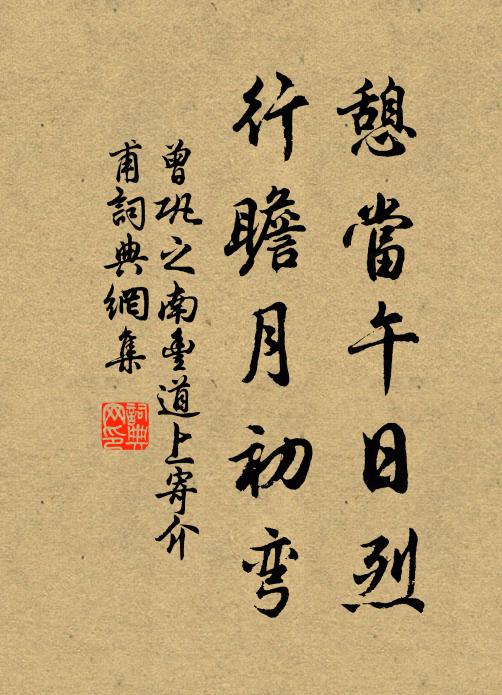 憩當午日烈
行瞻月初弯
曾巩之南豊道上寄介
甫詞典網集
詞典
网印